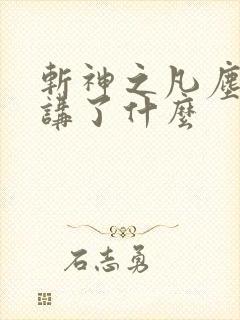 斬神之凡塵
講了什麼
石志勇